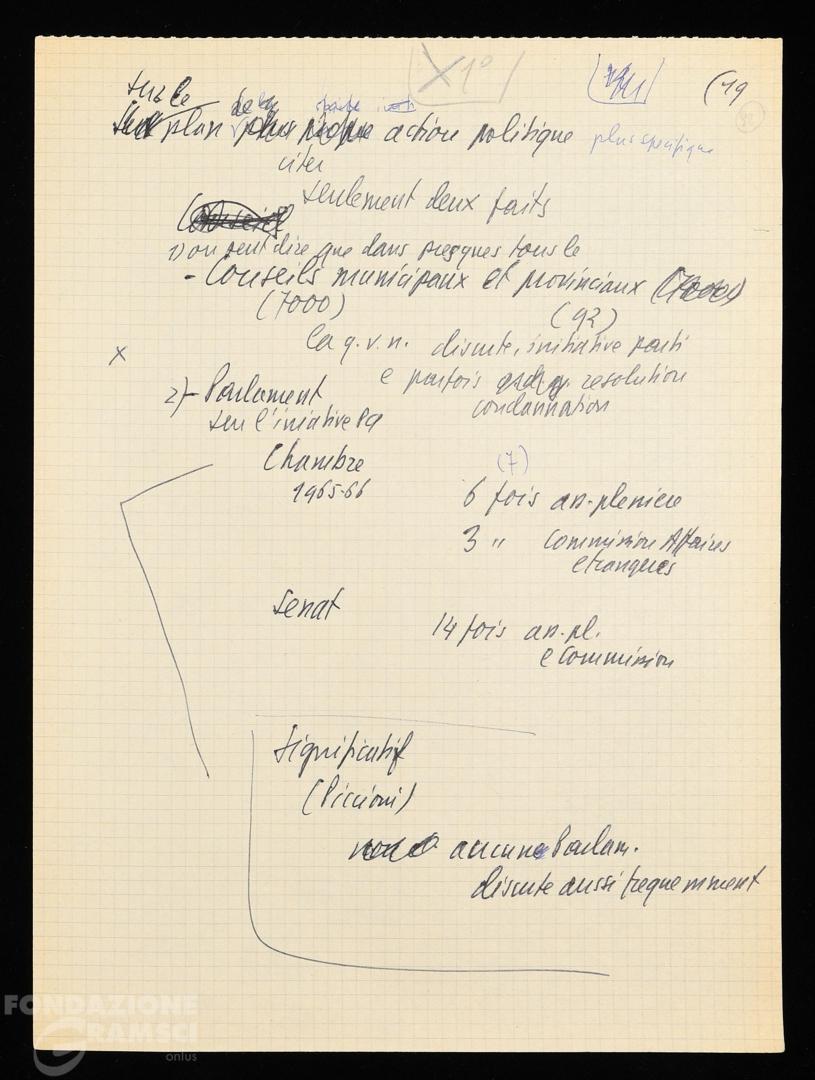 X1° (19
sur le
plan de la action politique plus specifique
citer
seulement deux faits
1) on peut dire que dans presques tous le
- Conseils municipaux et provinciaux
(7000) (92)
La q. v. n. discute, initiative parti
e parfois resolution
condannation
x
2) - Parlament
sur l'iniative Pa
Chambre (7)
1965-66 6 fois as. pleniere
3 " Commission Affaires
etrangeres
Senat
14 fois as. pl.
e Commission
Significatif
(Piccioni)
aucune Parlam.
discute aussi frequemment
FONDAZIONE
GRAMSCI
onlus